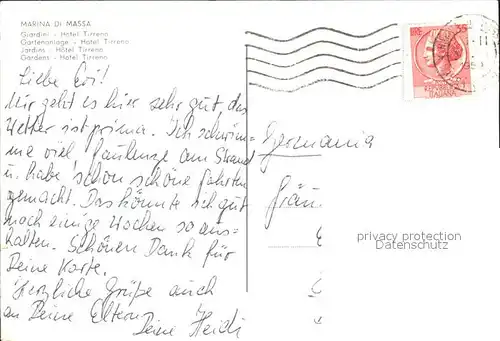 MARINA DI MASSA
Giardini - Hotel Tirreno
Gartenanlage - Hotel Tirreno
Jardins - Hôtel Tirreno
Gardens - Hotel Tirreno
LIRE 35
Liebe Evi!
Mir geht es hier sehr gut, das
Wetter ist prima. Ich schwim=
me viel faulenze am Strand
u. habe schon schöne Fahrten
gemacht. Das könnte ich gut
noch einige Wochen so aus=
halten. Schönen Dank für
Deine Karte.
Herzliche Grüße auch
an Deine Eltern
Deine Heidi
Germania
Fräu
privacy protection
Datenschutz